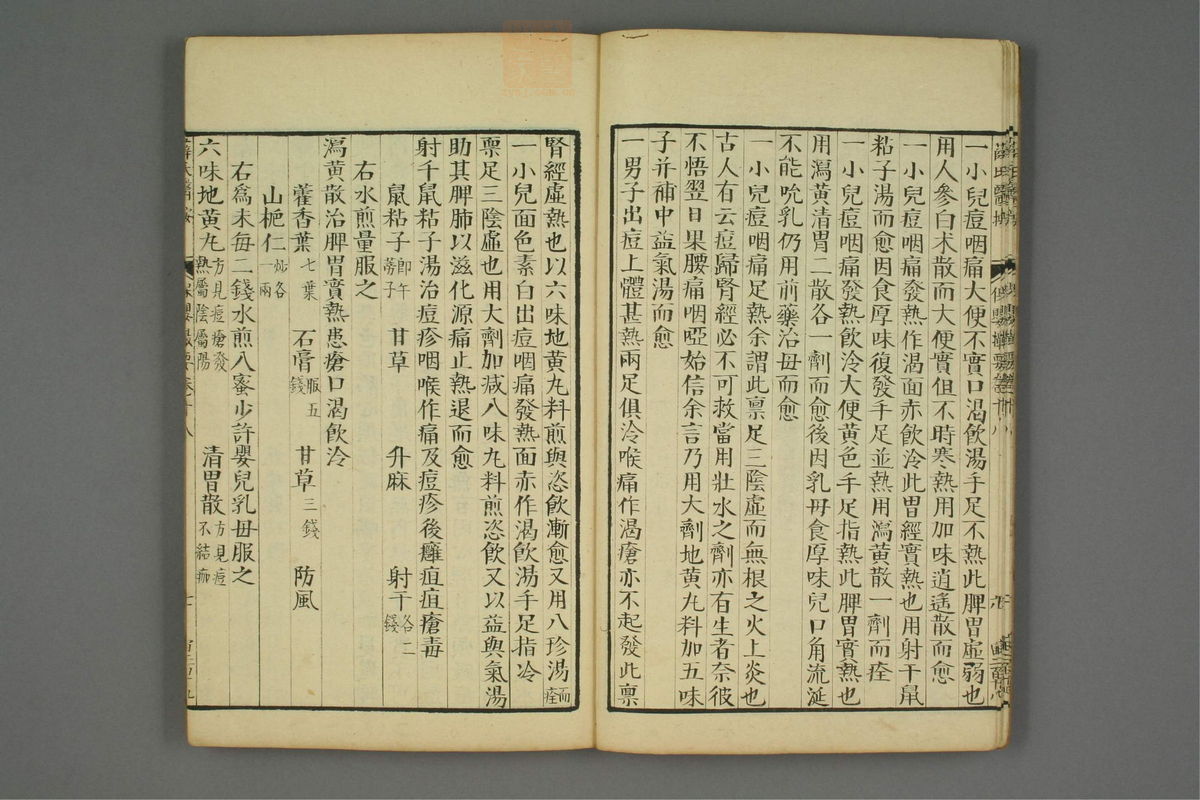 一小兒痘咽痛大便不實口渴飲湯手足不熱此脾胃虛弱也
用人參白朮散而大便實但不時寒熱用加味逍遙散而愈
一小兒痘咽痛發熱作渴面赤飲冷此胃經實熱也用射干鼠
粘子湯而愈因食厚味復發手足並熱用瀉黃散一劑而痊
一小兒痘咽痛發熱飲冷大便黃色手足指熱此脾胃實熱也
用瀉黃清胃二散各一劑而愈後因乳母食厚味兒口角流涎
不能吮乳仍用前藥治母而愈
一小兒痘咽痛足熱余謂此稟足三陰虛而無根之火上炎也
古人有云痘歸腎經必不可救當用壯水之劑亦有生者奈彼
不悟翌日果腰痛咽啞始信余言乃用大劑地黃丸料加五味
子并補中益氣湯而愈
一男子出痘上體甚熱兩足俱冷喉痛作渴瘡亦不起發此稟
腎經虛熱也以六味地黃丸料煎與恣飲漸愈又用八珍湯而痊
一小兒面色素白出痘咽痛發熱面赤作渴飲湯手足指冷
稟足三陰虛也用大劑加減八味丸料煎恣飲又以益與氣湯
助其脾肺以滋化源痛止熱退而愈
射干鼠粘子湯治痘疹咽喉作痛及痘疹後癰疽疽瘡毒
鼠粘子即牛蒡子 甘草 升麻 射干各二錢
右水煎量服之
瀉黃散治脾胃實熱患瘡口渴飲冷
藿香葉七葉 石膏煅五錢 甘草三錢 防風
山梔仁炒各一兩
右爲末每二錢水煎入蜜少許嬰兒乳母服之
六味地黃丸方見痘瘡發熱屬陰屬陽 清胃散方見痘不結痂